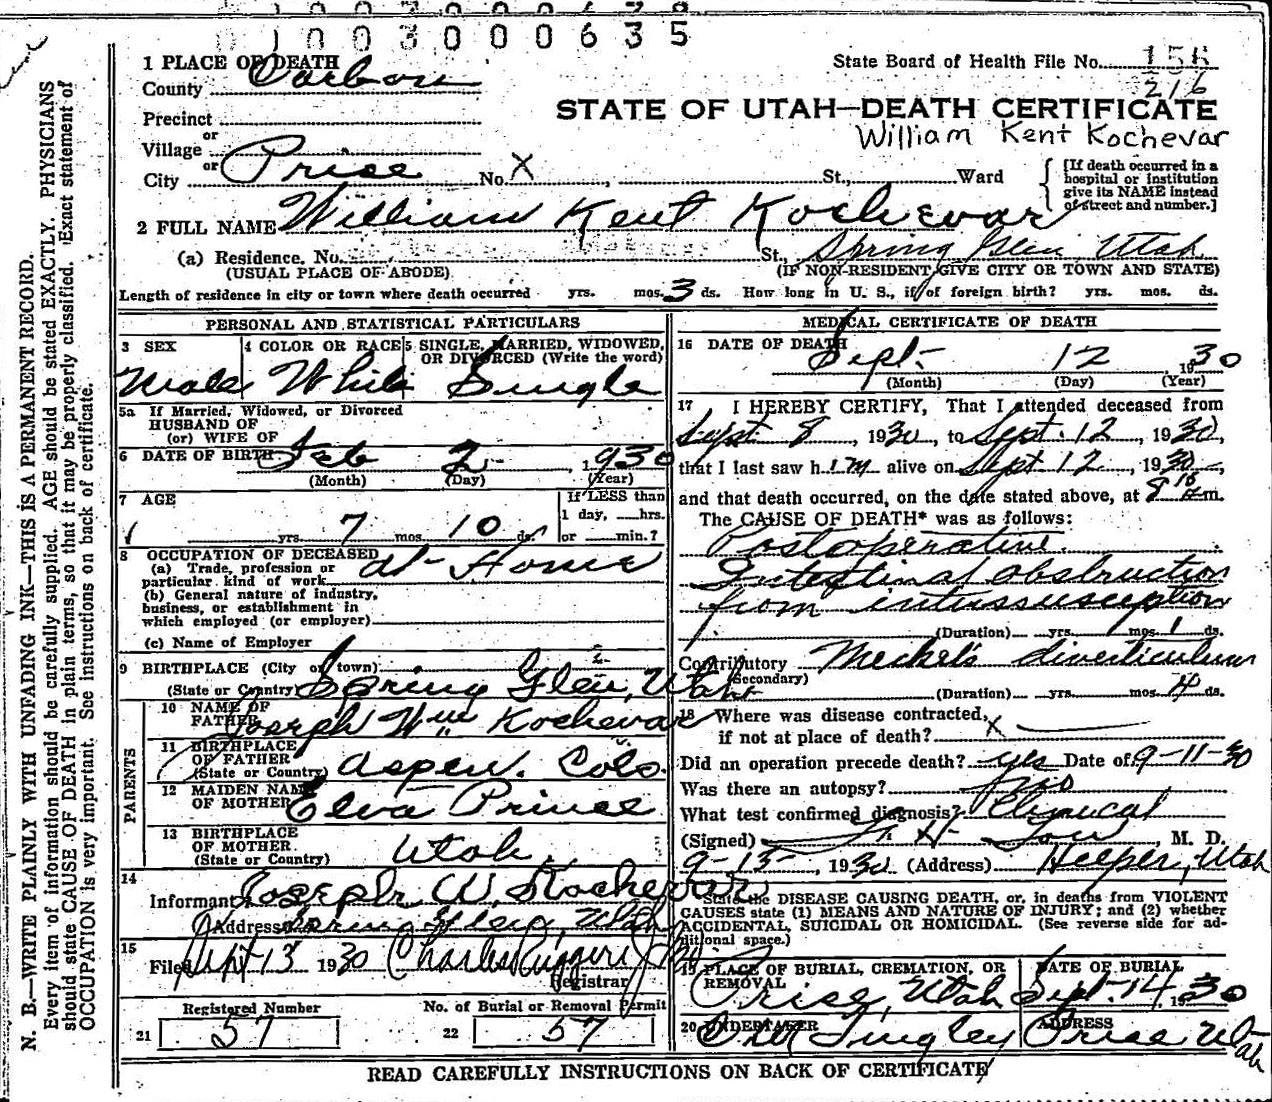 0 1 0 0 3 0 0 0 6 3 5
1 PLACE OF DEATH
County Carbon
State Board of Health File No. 156
216
Precinct
or
Village
or
City Price No. X St., Ward
STATE OF UTAH—DEATH CERTIFICATE
William Kent Kochevar
[If death occurred in a hospital or institution give its NAME instead of street and number.]
2 FULL NAME William Kent Kochevar
(a) Residence. No. St., Spring Glen, Utah
(USUAL PLACE OF ABODE) (IF NON-RESIDENT GIVE CITY OR TOWN AND STATE)
Length of residence in city or town where death occurred yrs. mos. 3 ds. How long in U. S., if of foreign birth? yrs. mos. ds.
PERSONAL AND STATISTICAL PARTICULARS
3 SEX 4 COLOR OR RACE 5 SINGLE, MARRIED, WIDOWED, OR DIVORCED (Write the word)
Male White Single
5a If Married, Widowed, or Divorced
HUSBAND OF
(or) WIFE OF
6 DATE OF BIRTH Feb 2 1930
(Month) (Day) (Year)
7 AGE If LESS than
1 day, hrs.
yrs. 7 mos. 10 ds. or min.?
8 OCCUPATION OF DECEASED
(a) Trade, profession or
particular kind of work At Home
(b) General nature of industry,
business, or establishment in
which employed (or employer)
(c) Name of Employer
9 BIRTHPLACE (City or town)
(State or Country) Spring Glen, Utah
PARENTS
10 NAME OF
FATHER Joseph Wm Kochevar
11 BIRTHPLACE
OF FATHER
(State or Country) Aspen, Colo.
12 MAIDEN NAME
OF MOTHER Elva Prince
13 BIRTHPLACE
OF MOTHER
(State or Country) Utah
14
Informant Joseph W. Kochevar
(Address) Spring Glen, Utah
15
Filed Sept 13 1930 Charles Ruggeri
Registrar
Registered Number No. of Burial or Removal Permit
21 57 22 57
MEDICAL CERTIFICATE OF DEATH
16 DATE OF DEATH
Sept. 12 1930
(Month) (Day) (Year)
17 I HEREBY CERTIFY, That I attended deceased from
Sept 8, 1930, to Sept. 12, 1930,
that I last saw him alive on Sept 12, 1930,
and that death occurred, on the date stated above, at 8 m.
The CAUSE OF DEATH* was as follows:
Postoperative
Intestinal obstruction
from intussusception
(Duration) yrs. mos. 1 ds.
Contributory Meckel's diverticulum
(Secondary)
(Duration) yrs. mos. 4 ds.
18 Where was disease contracted,
if not at place of death? X
Did an operation precede death? yes Date of 9-11-30
Was there an autopsy? No
What test confirmed diagnosis? Clynical
(Signed) M. D.
9-13-, 1930 (Address) Helper, Utah
*State the DISEASE CAUSING DEATH, or, in deaths from VIOLENT
CAUSES state (1) MEANS AND NATURE OF INJURY; and (2) whether
ACCIDENTAL, SUICIDAL OR HOMICIDAL. (See reverse side for ad-
ditional space.)
19 PLACE OF BURIAL, CREMATION, OR REMOVAL DATE OF BURIAL
Price, Utah Sept. 14, 1930
20 UNDERTAKER ADDRESS
Price Utah
READ CAREFULLY INSTRUCTIONS ON BACK OF CERTIFICATE
N. B.—WRITE PLAINLY WITH UNFADING INK—THIS IS A PERMANENT RECORD.
Every item of information should be carefully supplied. AGE should be stated EXACTLY. PHYSICIANS
should state CAUSE OF DEATH in plain terms, so that it may be properly classified. Exact statement of
OCCUPATION is very important. See instructions on back of certificate.